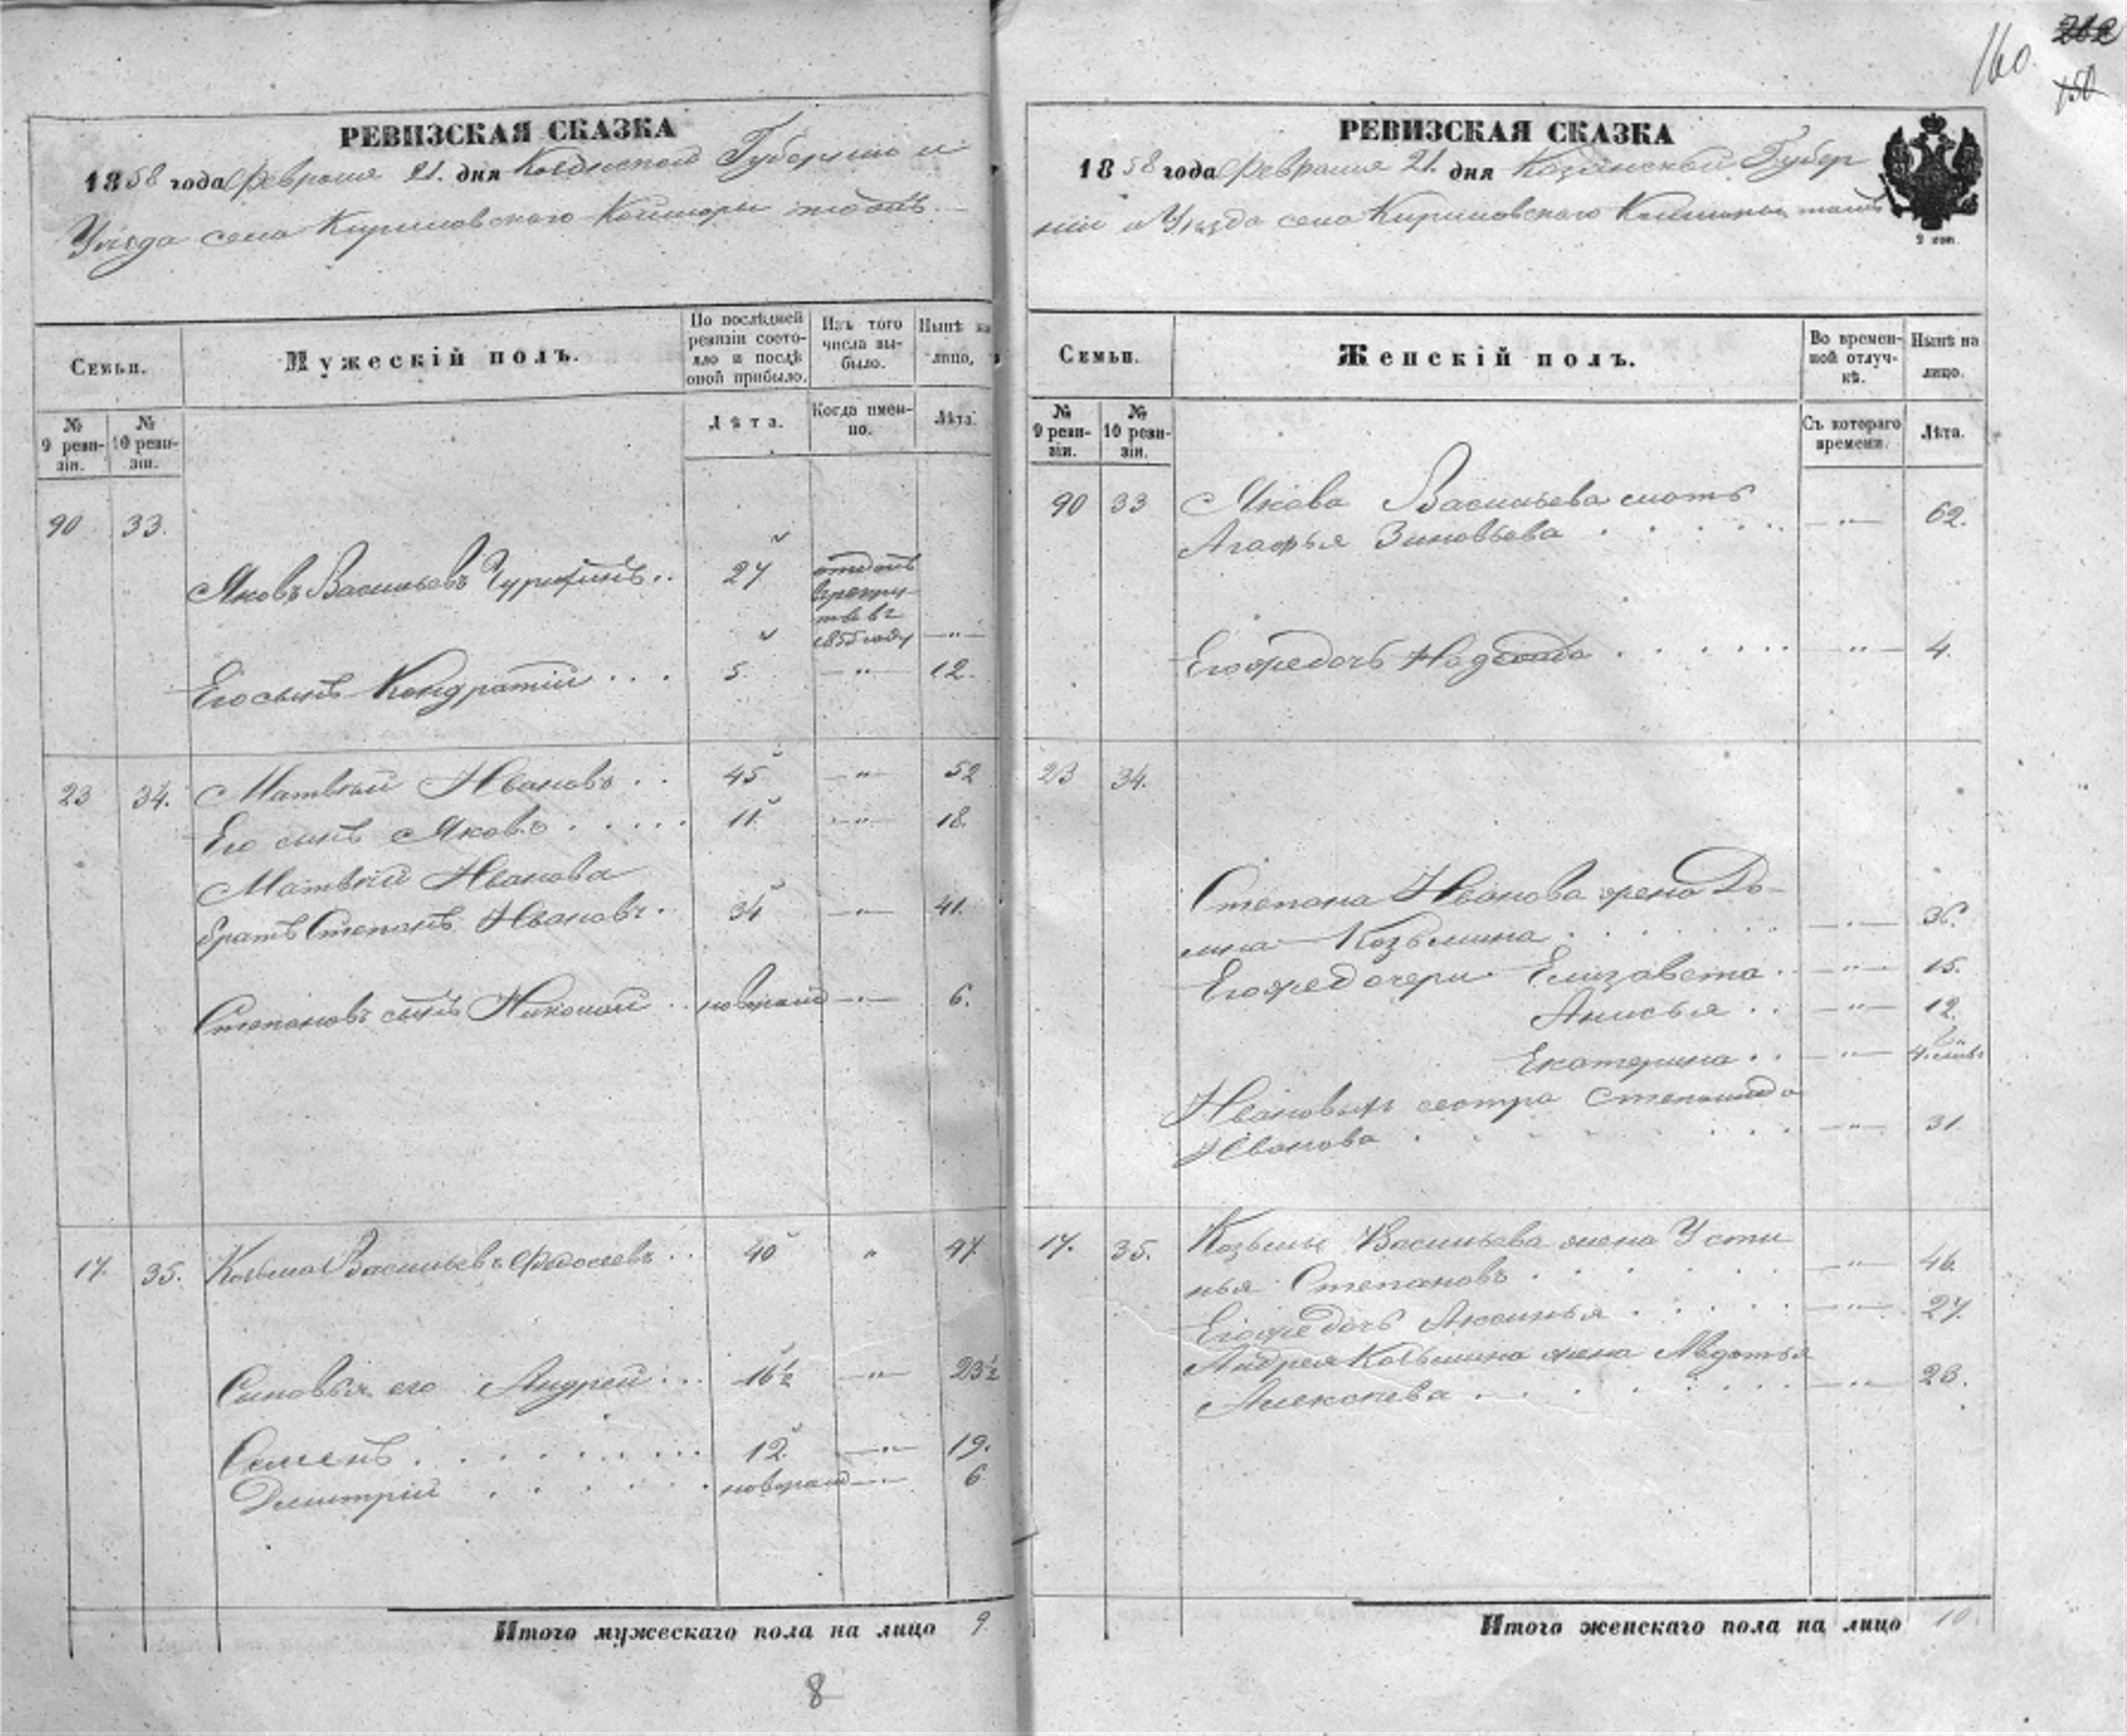 160.
212
150
РЕВИЗСКАЯ СКАЗКА
1858 года Февраля 21. дня Казанской Губернии и
Уѣзда села Кириловскаго Конторы
Семьи.
Мужескій полъ.
По послѣдней ревизіи состояло и послѣ оной прибыло.
Изъ того числа выбыло.
Нынѣ на лицо,
№ 9 ревизіи.
№ 10 ревизіи.
Лѣта.
Когда именно.
Лѣта.
90 33.
Яковъ Васильевъ .. 27 отданъ
въ 1855 году —"—
Его сынъ Кондратій ... 5. —"— 12.
23 34. Матвѣй Ивановъ .. 45 —"— 52
Его сынъ Яковъ ..... 11. —"— 18.
Матвѣя Иванова
братъ Степанъ Ивановъ. 34 —"— 41.
Степановъ сынъ Николай .. новорожд —"— 6.
17. 35. Козьма Васильевъ Федосеевъ .. 40 " 47.
Сыновья его Андрей ... 16½ —"— 23½
Семенъ ........ 12. —"— 19.
Дмитрій ...... новорожд —"— 6
Итого мужескаго пола на лицо 9
8
РЕВИЗСКАЯ СКАЗКА
1858 года Февраля 21. дня Казанской Губер
ніи и Уѣзда села Кириловскаго Конторы
2 коп.
Семьи.
Женскій полъ.
Во временной отлучкѣ.
Нынѣ на лицо.
№ 9 ревизіи.
№ 10 ревизіи.
Съ котораго времени.
Лѣта.
90 33 Якова Васильева мать
Агафья Зиновьева ..... —"— 62.
Его же дочь Надежда ...... —"— 4.
23 34.
Степана Иванова жена До-
мна Козьмина ....... —"— 36.
Его же дочери Елизавета .. —"— 15.
Анисья .. —"— 12.
Екатерина .. —"—
Ивановыхъ сестра Степанида
Иванова ..... —"— 31
17. 35. Козьмы Васильева жена Усти
нья Степанова ...... —"— 46.
Его же дочь Аксинья ..... —"— 27.
Андрея Козьмина жена Авдотья
Алексѣева ....... —"— 23.
Итого женскаго пола на лицо 10